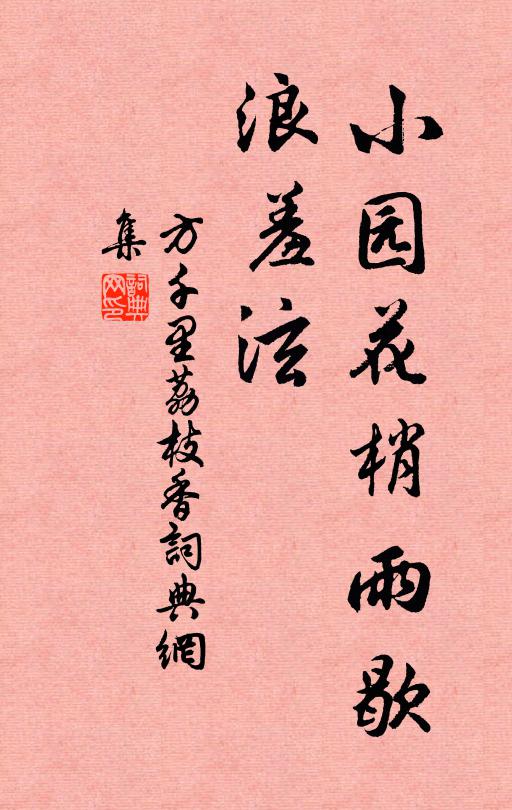 小园花梢雨歇
浪羞泫
方千里荔枝香詞典網
集
詞典
网印